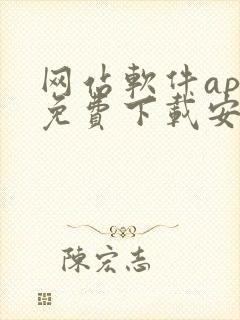 网估軟件ap
免費下載安
陳宏志